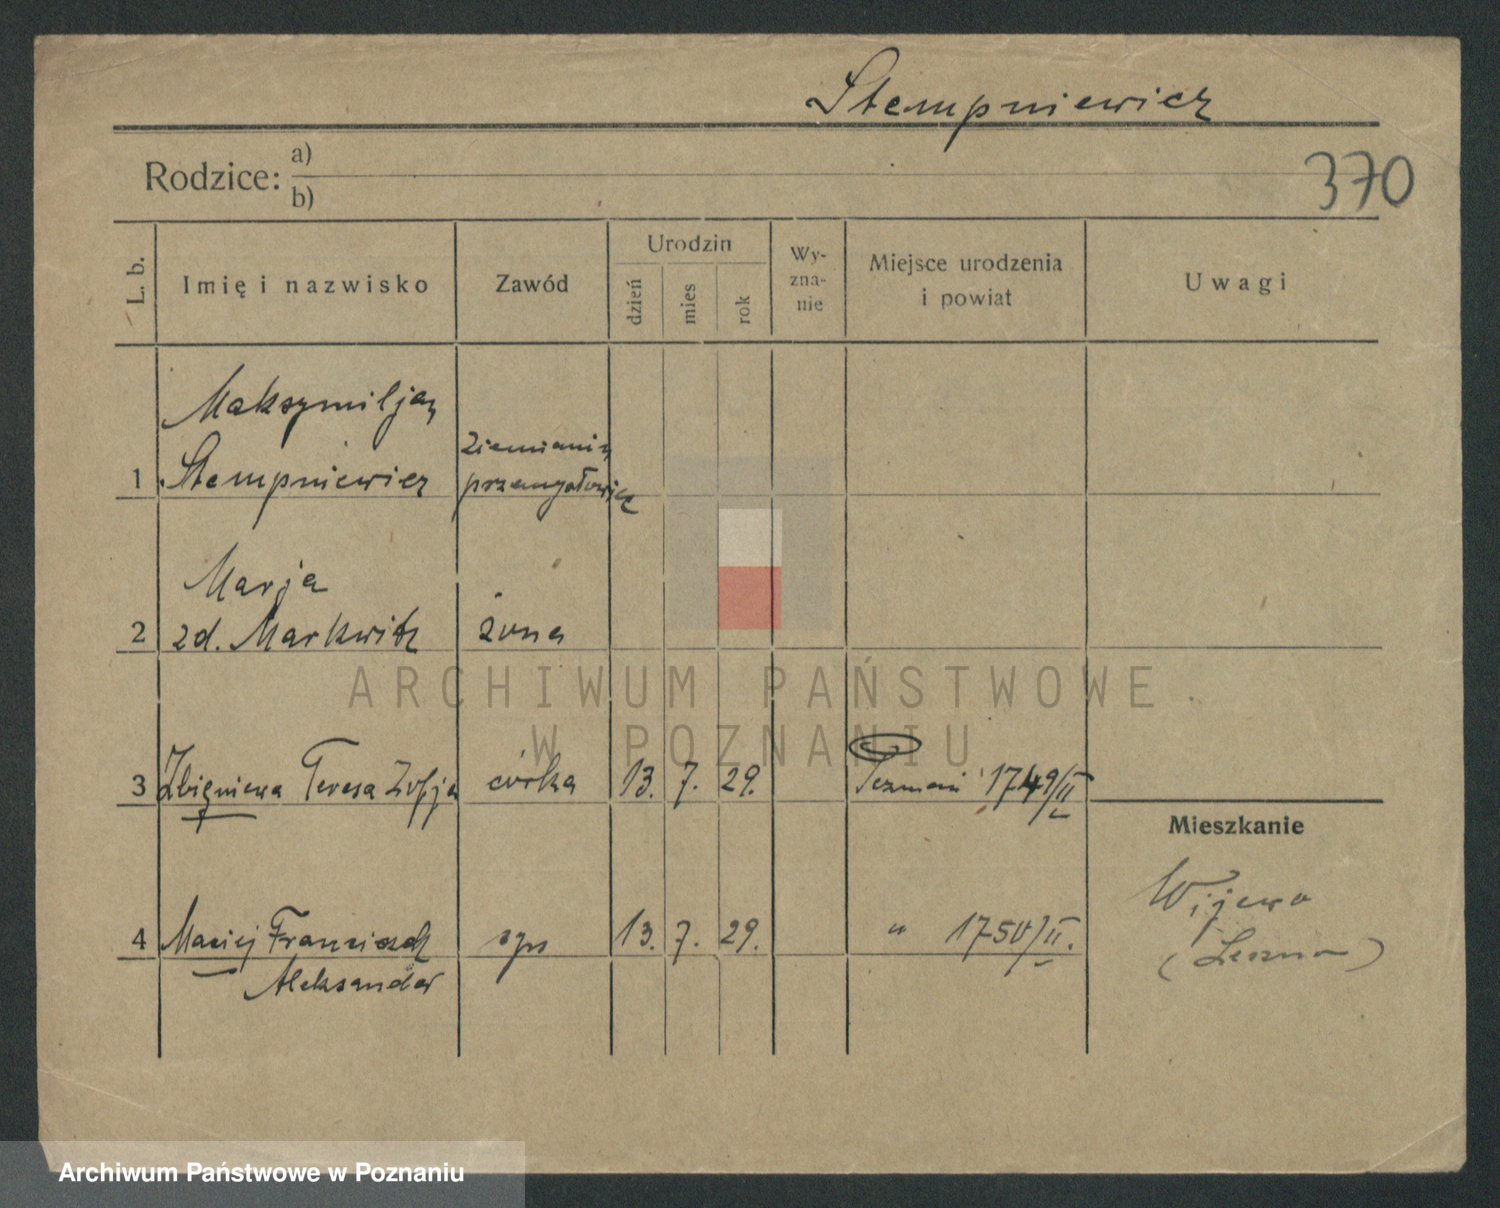 Stempniewicz
370
Rodzice: a)
b)
L. b.
Imię i nazwisko
Zawód
Urodzin
dzień
mies
rok
Wy-
zna-
nie
Miejsce urodzenia
i powiat
Uwagi
Maksymiljan
1 Stempniewicz
ziemianin
przemysłowiec
Marja
2 zd. Markwitz żona
3 Zbigniewa Teresa Zofja córka 13. 7. 29. Poznań 1749/II
Mieszkanie
Wijewo
(Leszno)
4 Maciej Franciszek syn 13. 7. 29. " 1750/II.
Aleksander
ARCHIWUM PAŃSTWOWE
W POZNANIU
Archiwum Państwowe w Poznaniu